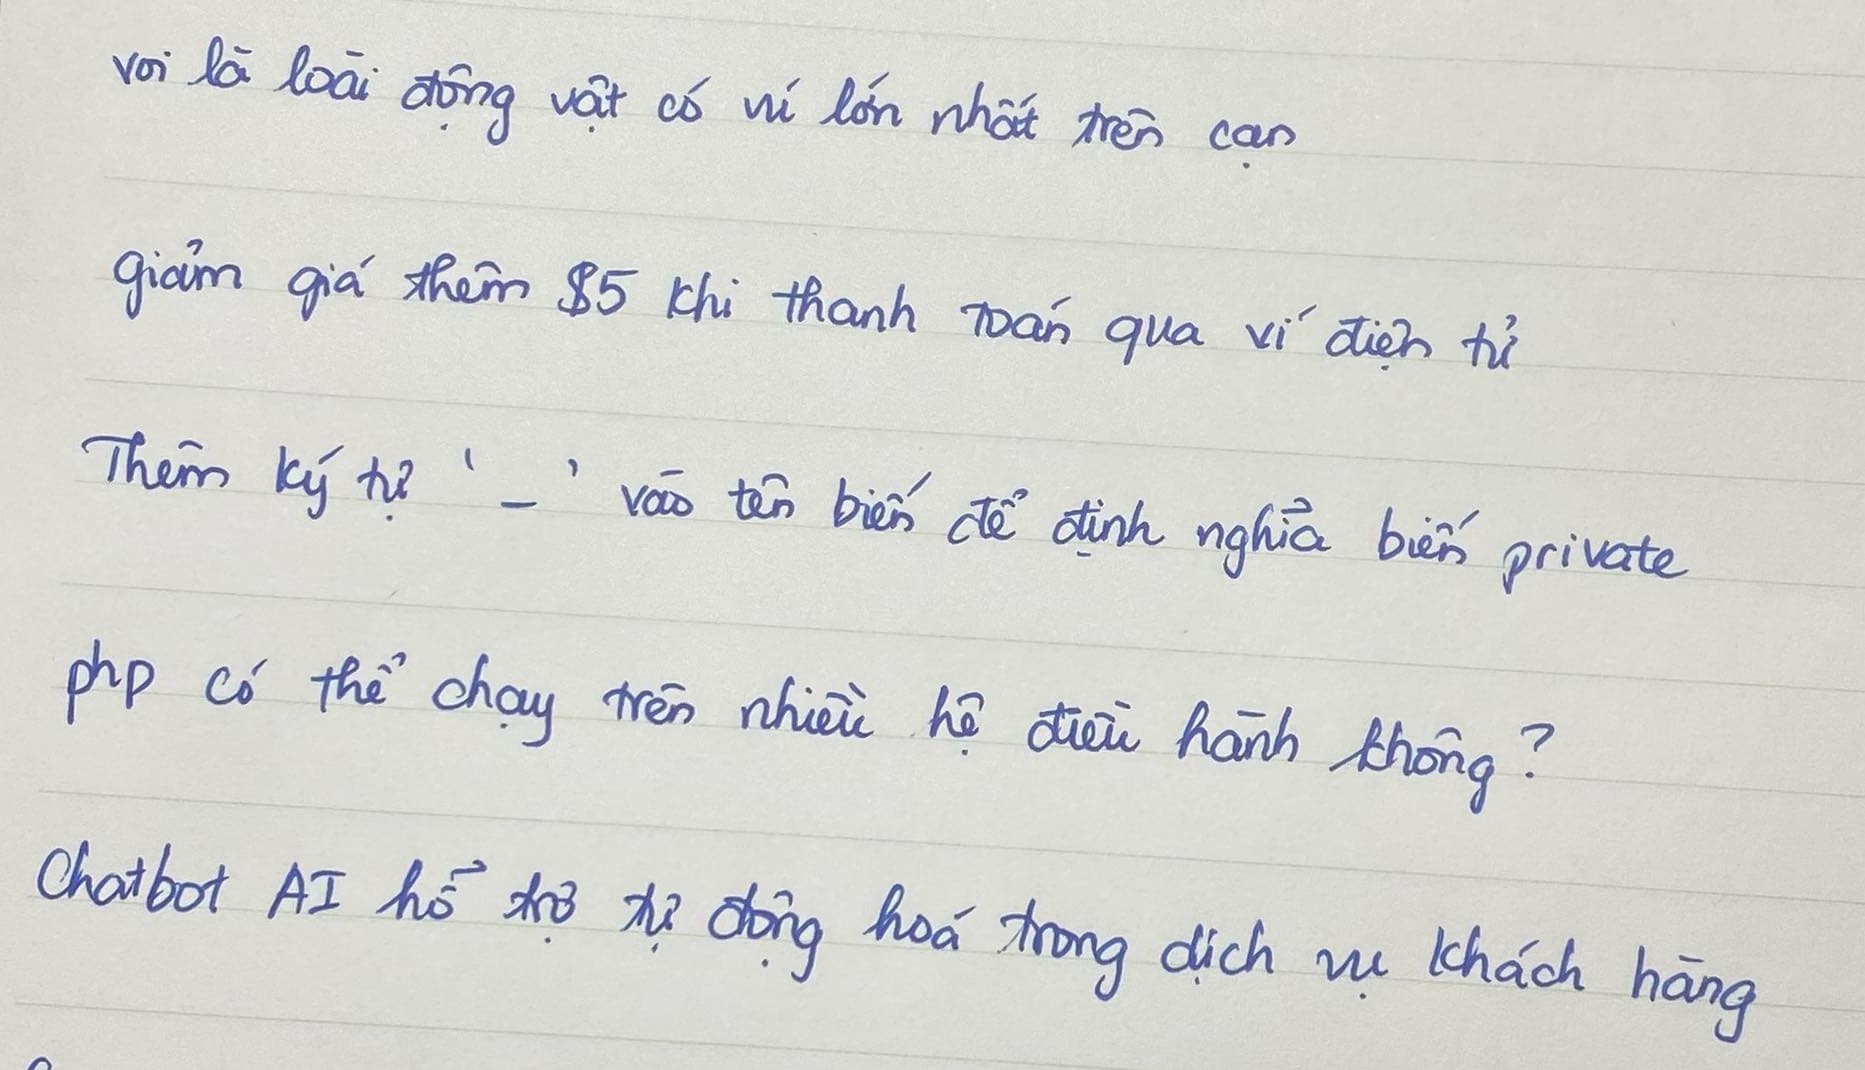 voi là loài động vật có ví lớn nhất trên cạn
giảm giá thêm $5 khi thanh toán qua ví điện tử
Thêm ký tự '_' vào tên biến để định nghĩa biến private
php có thể chạy trên nhiều hệ điều hành không?
Chatbot AI hỗ trợ tự động hoá trong dịch vụ khách hàng